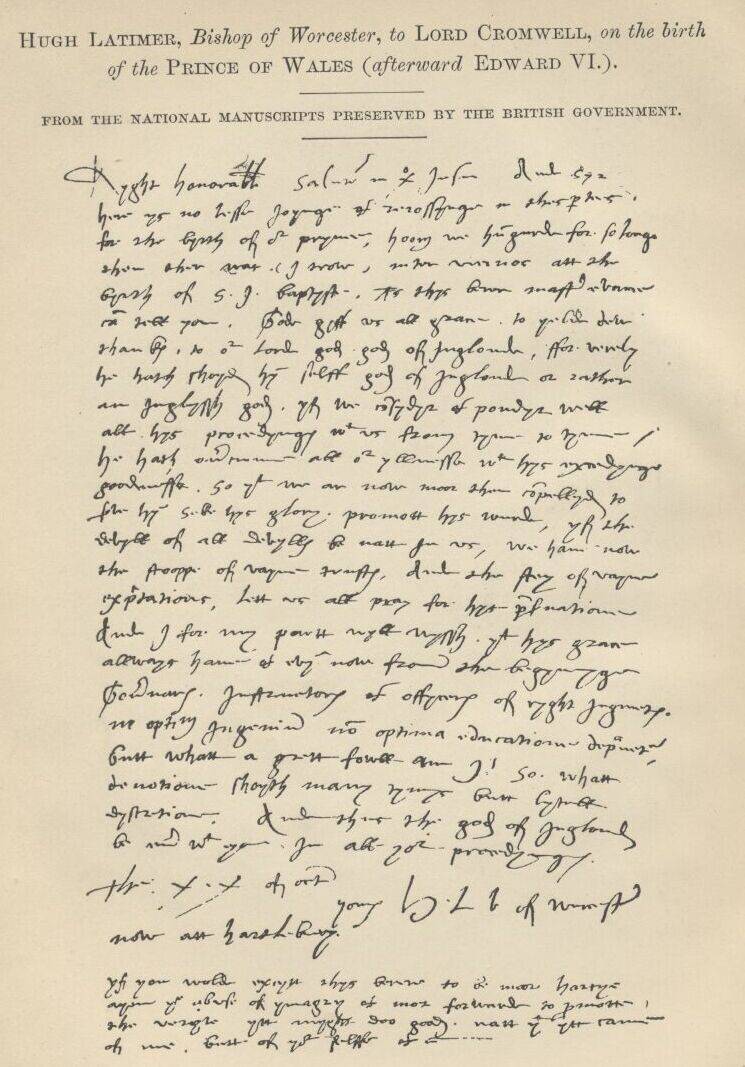 HUGH LATIMER, Bishop of Worcester, to LORD CROMWELL, on the birth
of the PRINCE OF WALES (afterward EDWARD VI.).
FROM THE NATIONAL MANUSCRIPTS PRESERVED BY THE BRITISH GOVERNMENT.
Ryght honorable Salutē in X Jesu And Syr
here ys no lesse joynge & reiossynge in thes ptees
for the byrth of or prynce, hoom we hūgurde for so longe
then ther was (I trow) inter vicinos att the
byrth of S. J. baptyste. As thys berer mastr evance
cā tell you. Gode gyff us all grace to yelde dew
thanks, to or lord god god of Inglonde, ffor verely
he hath shoyd hym selff god of Inglond or rather
an Inglyssh god. yf we cōsydyr & pondyr well
all hys procedyngs wt us from tyme to tyme /
he hath ovrcumme all or yllnesse wt hys excedynge
goodnesse. So yt we ar now moor then cōpellyd to
serve hym seke hys glory. promott hys wurde, yf the
devyll of all devylls be natt in us, we have now
the stoppe of vayne trusts, And the stey of vayne
expectations, lett us all pray for hys preservatione
And I for my partt wyll wyssh yt hys grace
allways have & evyn now from the begynynge
Governars. Instructors & offycers of ryght jugmente.
ne optimū Ingeniū nō optima educatione depravetr
butt whatt a grett fowll am I! So. whatt
devotione shoyth many tyms butt lytull
dyscretione. And thus the god of Inglond
be evr wt you. In all yor procedyngs.
the. X. X of octr
yours H. L. b of wurcestr
now att hartlebury.
yf you wolde excytt thys berer to be moor hartye
ayen ye abuse of ymagry & mor forwarde to pmotte
the veryte ytt myght doo good. natt yt ytt came
of me. butt of yor selffe &c